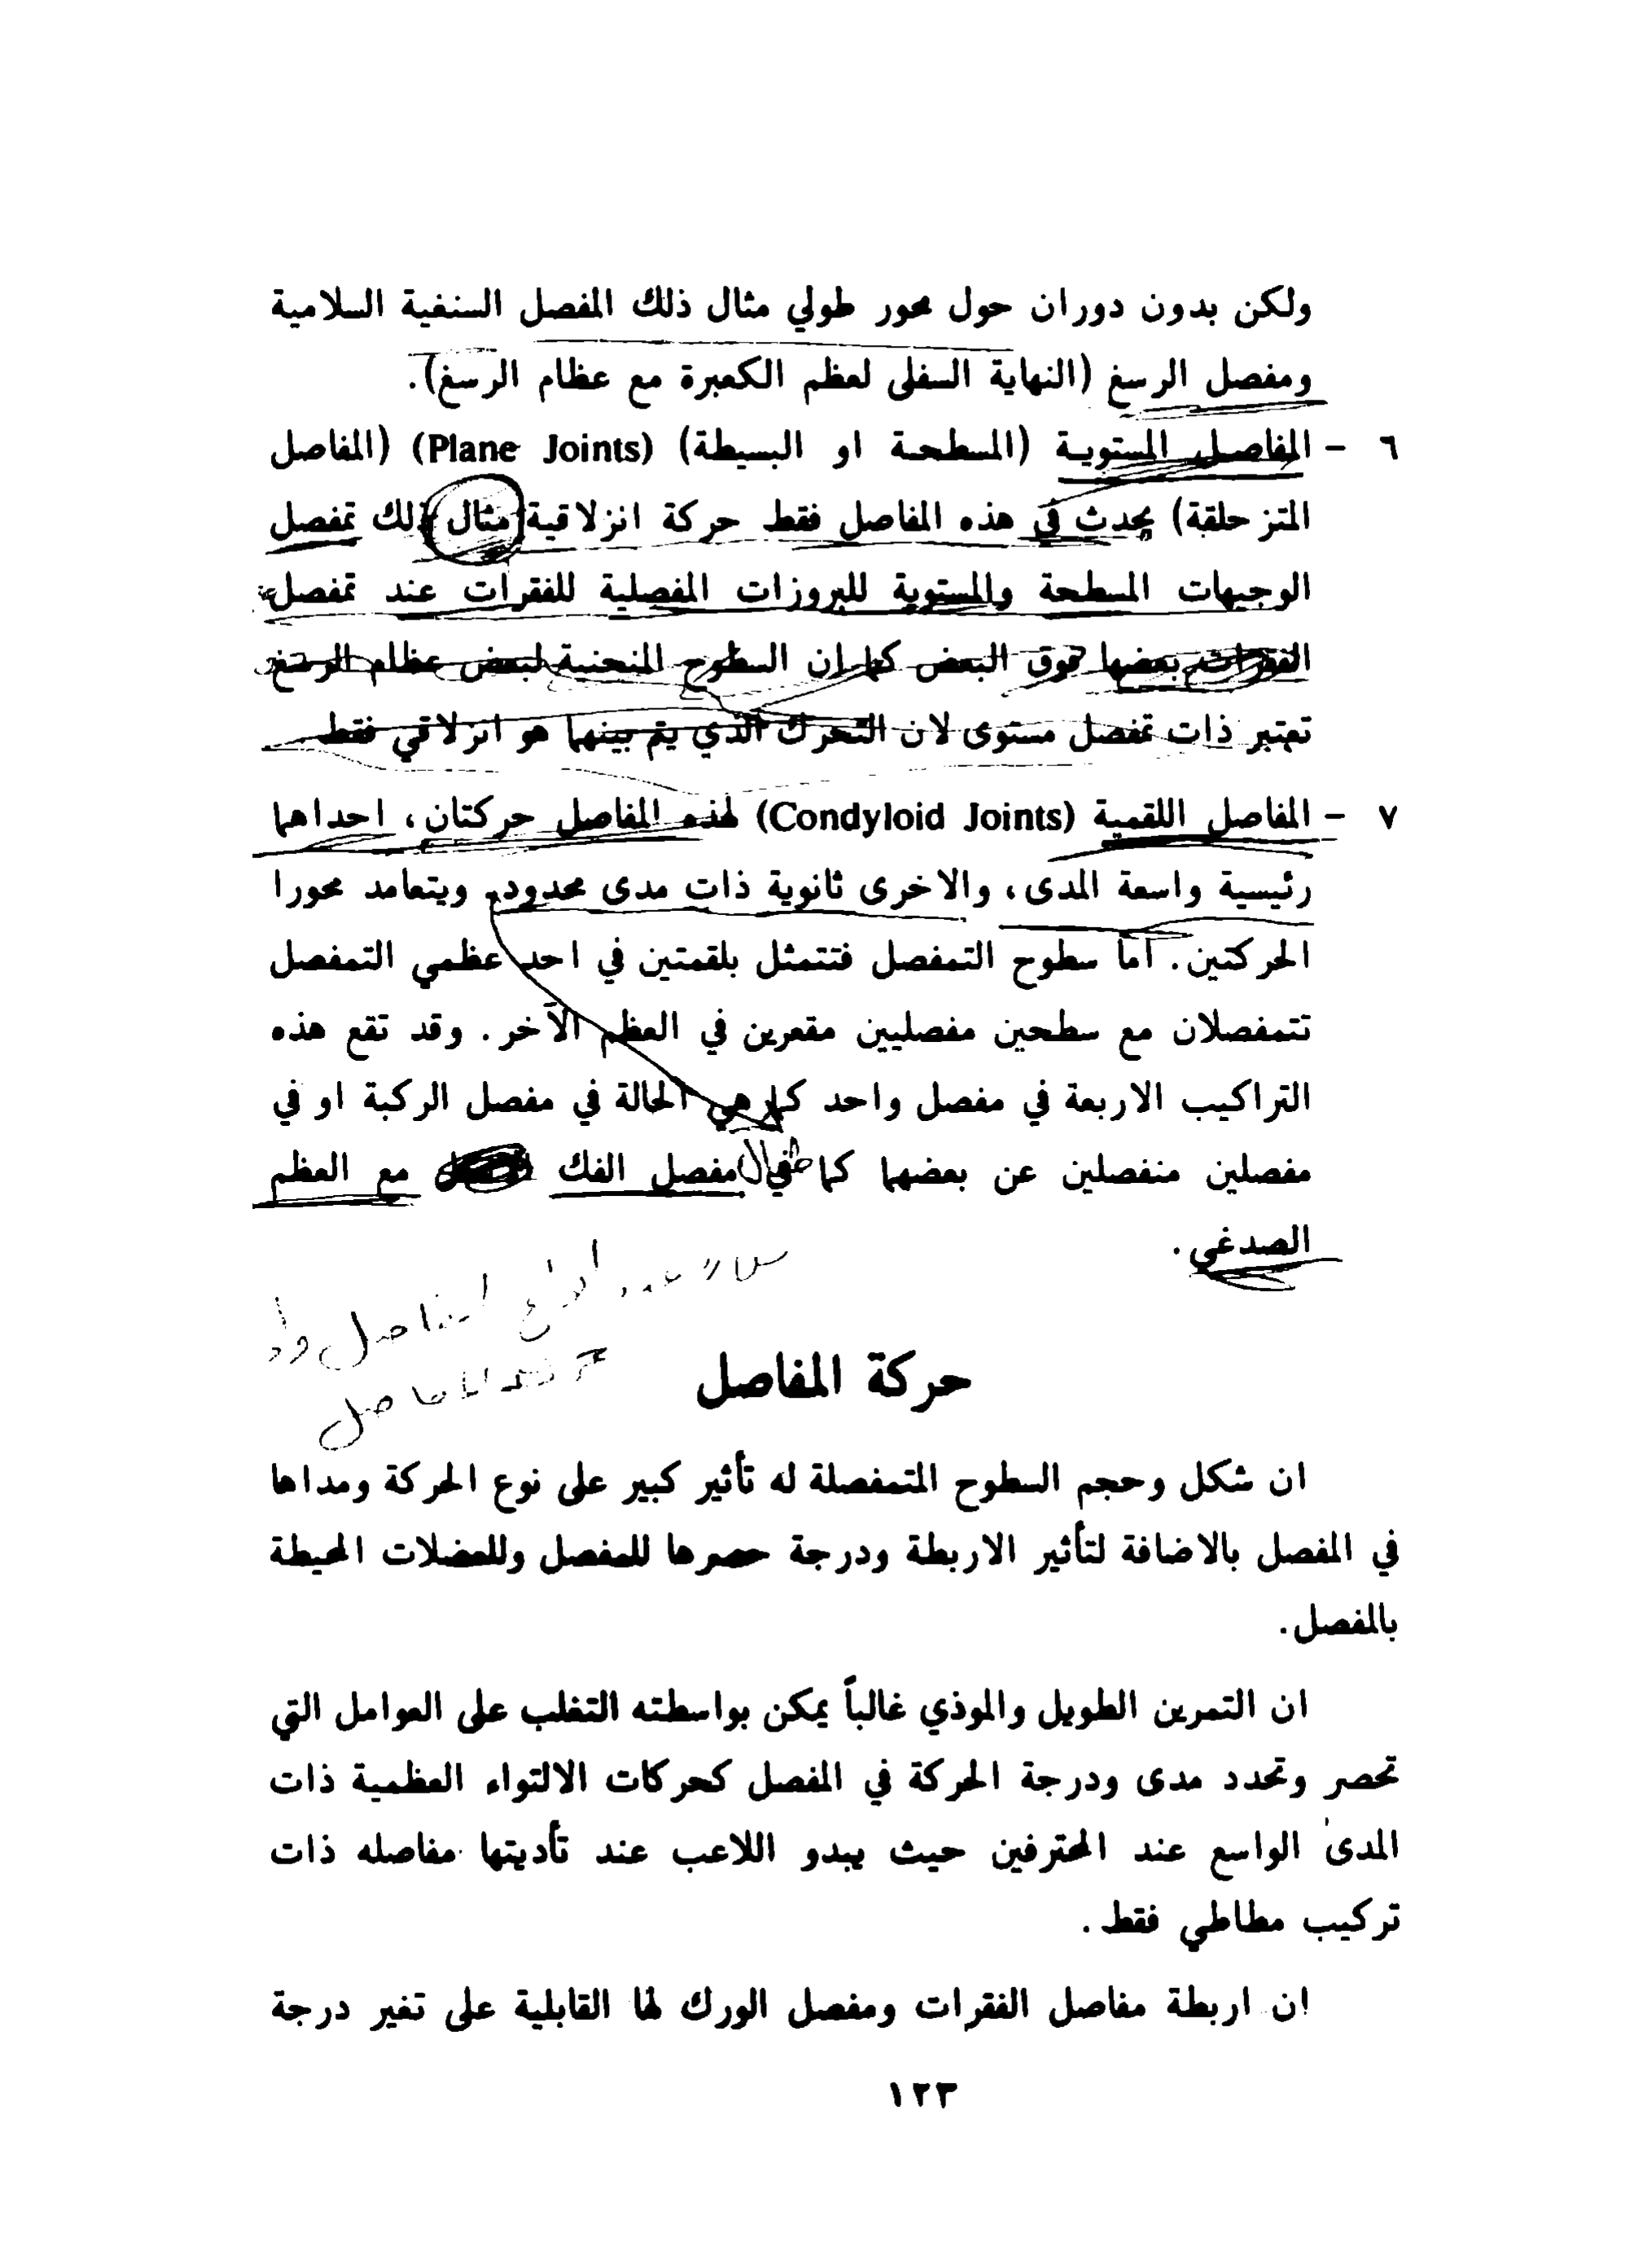 ولكن بدون دوران حول محور طولي مثال ذلك المفصل السنفية السلامية
ومفصل الرسغ (النهاية السفلى لعظم الكعبرة مع عظام الرسغ).
٦ - المفاصل المستوية (المسطحة او البسيطة) (Plane Joints) (المفاصل
المتزحلقة) يحدث في هذه المفاصل فقط حركة انزلاقية مثال ذلك تمفصل
الوجيهات المسطحة والمستوية للبروزات المفصلية للفقرات عند تمفصل
الفقرات بعضها فوق البعض كما إن السطوح المنحنية لبعض عظام الرسغ
تعتبر ذات تمفصل مستوى لان التحرك الذي يتم بينهما هو انزلاقي فقط
٧ - المفاصل اللقمية (Condyloid Joints) لهذه المفاصل حركتان، احداهما
رئيسية واسعة المدى، والاخرى ثانوية ذات مدى محدود، ويتعامد محورا
الحركتين. أما سطوح التمفصل فتتمثل بلقمتين في احد عظمي التمفصل
تتمفصلان مع سطحين مفصليين مقعرين في العظم الآخر. وقد تقع هذه
التراكيب الاربعة في مفصل واحد كما هي الحالة في مفصل الركبة او في
مفصلين منفصلين عن بعضهما كما في مفصل الفك مع العظم
الصدغي.
حركة المفاصل
ان شكل وحجم السطوح المتمفصلة له تأثير كبير على نوع الحركة ومداها
في المفصل بالاضافة لتأثير الاربطة ودرجة حصرها للمفصل وللعضلات المحيطة
بالمفصل.
ان التمرين الطويل والموذي غالباً يمكن بواسطته التغلب على العوامل التي
تحصر وتحدد مدى ودرجة الحركة في المفصل كحركات الالتواء العظمية ذات
المدى الواسع عند المحترفين حيث يبدو اللاعب عند تأديتها مفاصله ذات
تركيب مطاطي فقط.
ان اربطة مفاصل الفقرات ومفصل الورك لها القابلية على تغير درجة
١٢٣